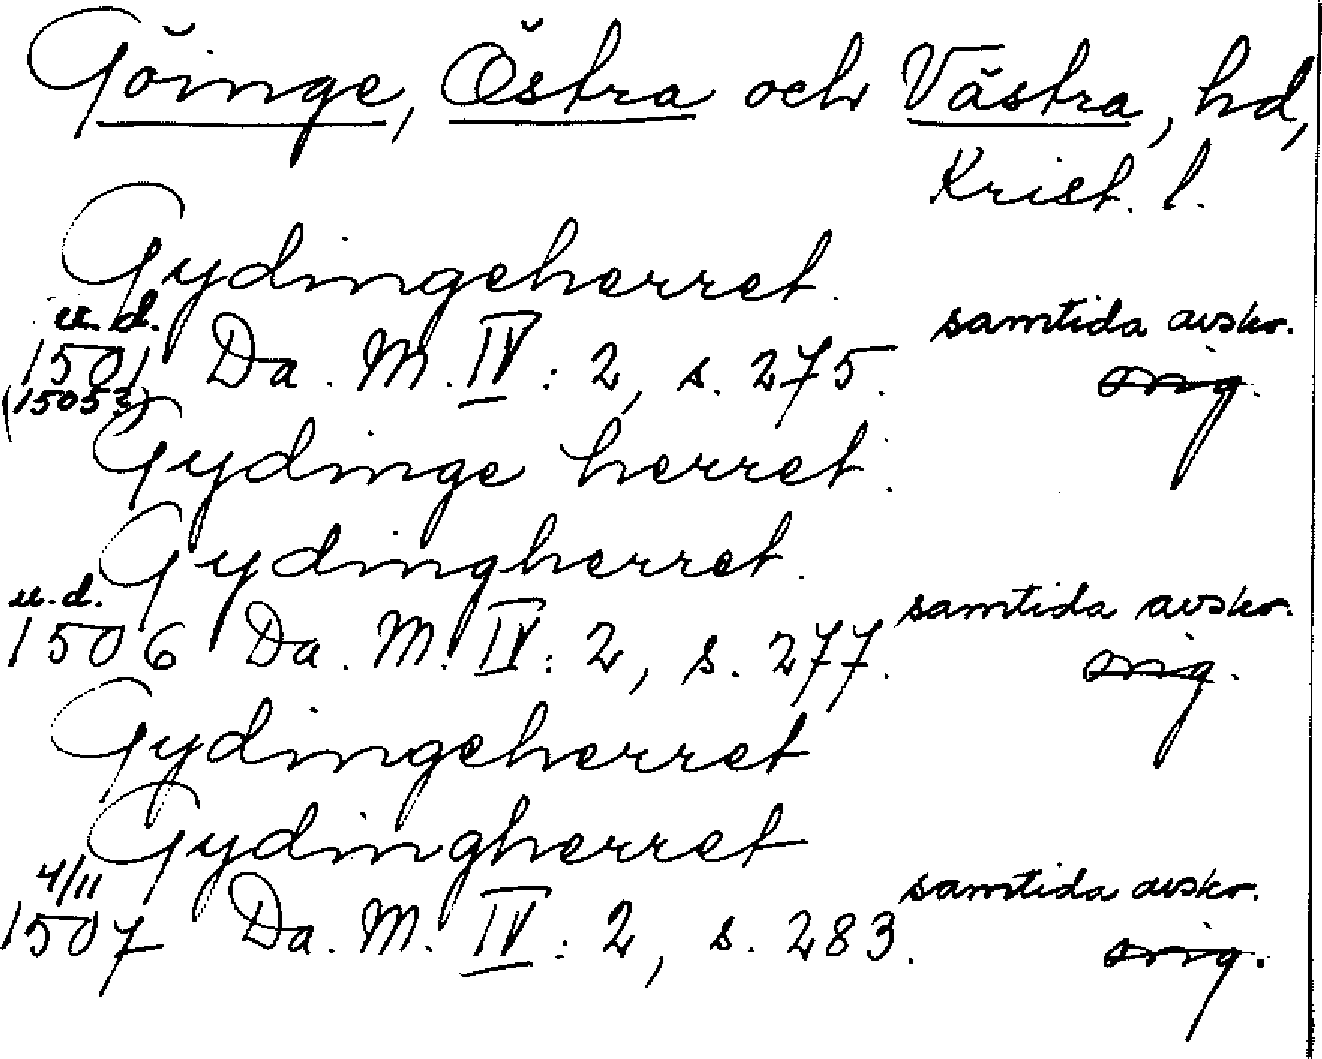 Göinge, Östra och Västra, hd,
Krist. l.
Gydingeherret.
u. d.
1501 Da. M. IV: 2, s. 275. samtida avskr.
(15053) orig.
Gydinge herret.
Gydingherret.
u. d.
1506 Da. M. IV: 2, s. 277. samtida avskr.
orig.
Gydingeherret
Gydingherret
4/11
1507 Da. M. IV: 2, s. 283. samtida avskr.
orig.